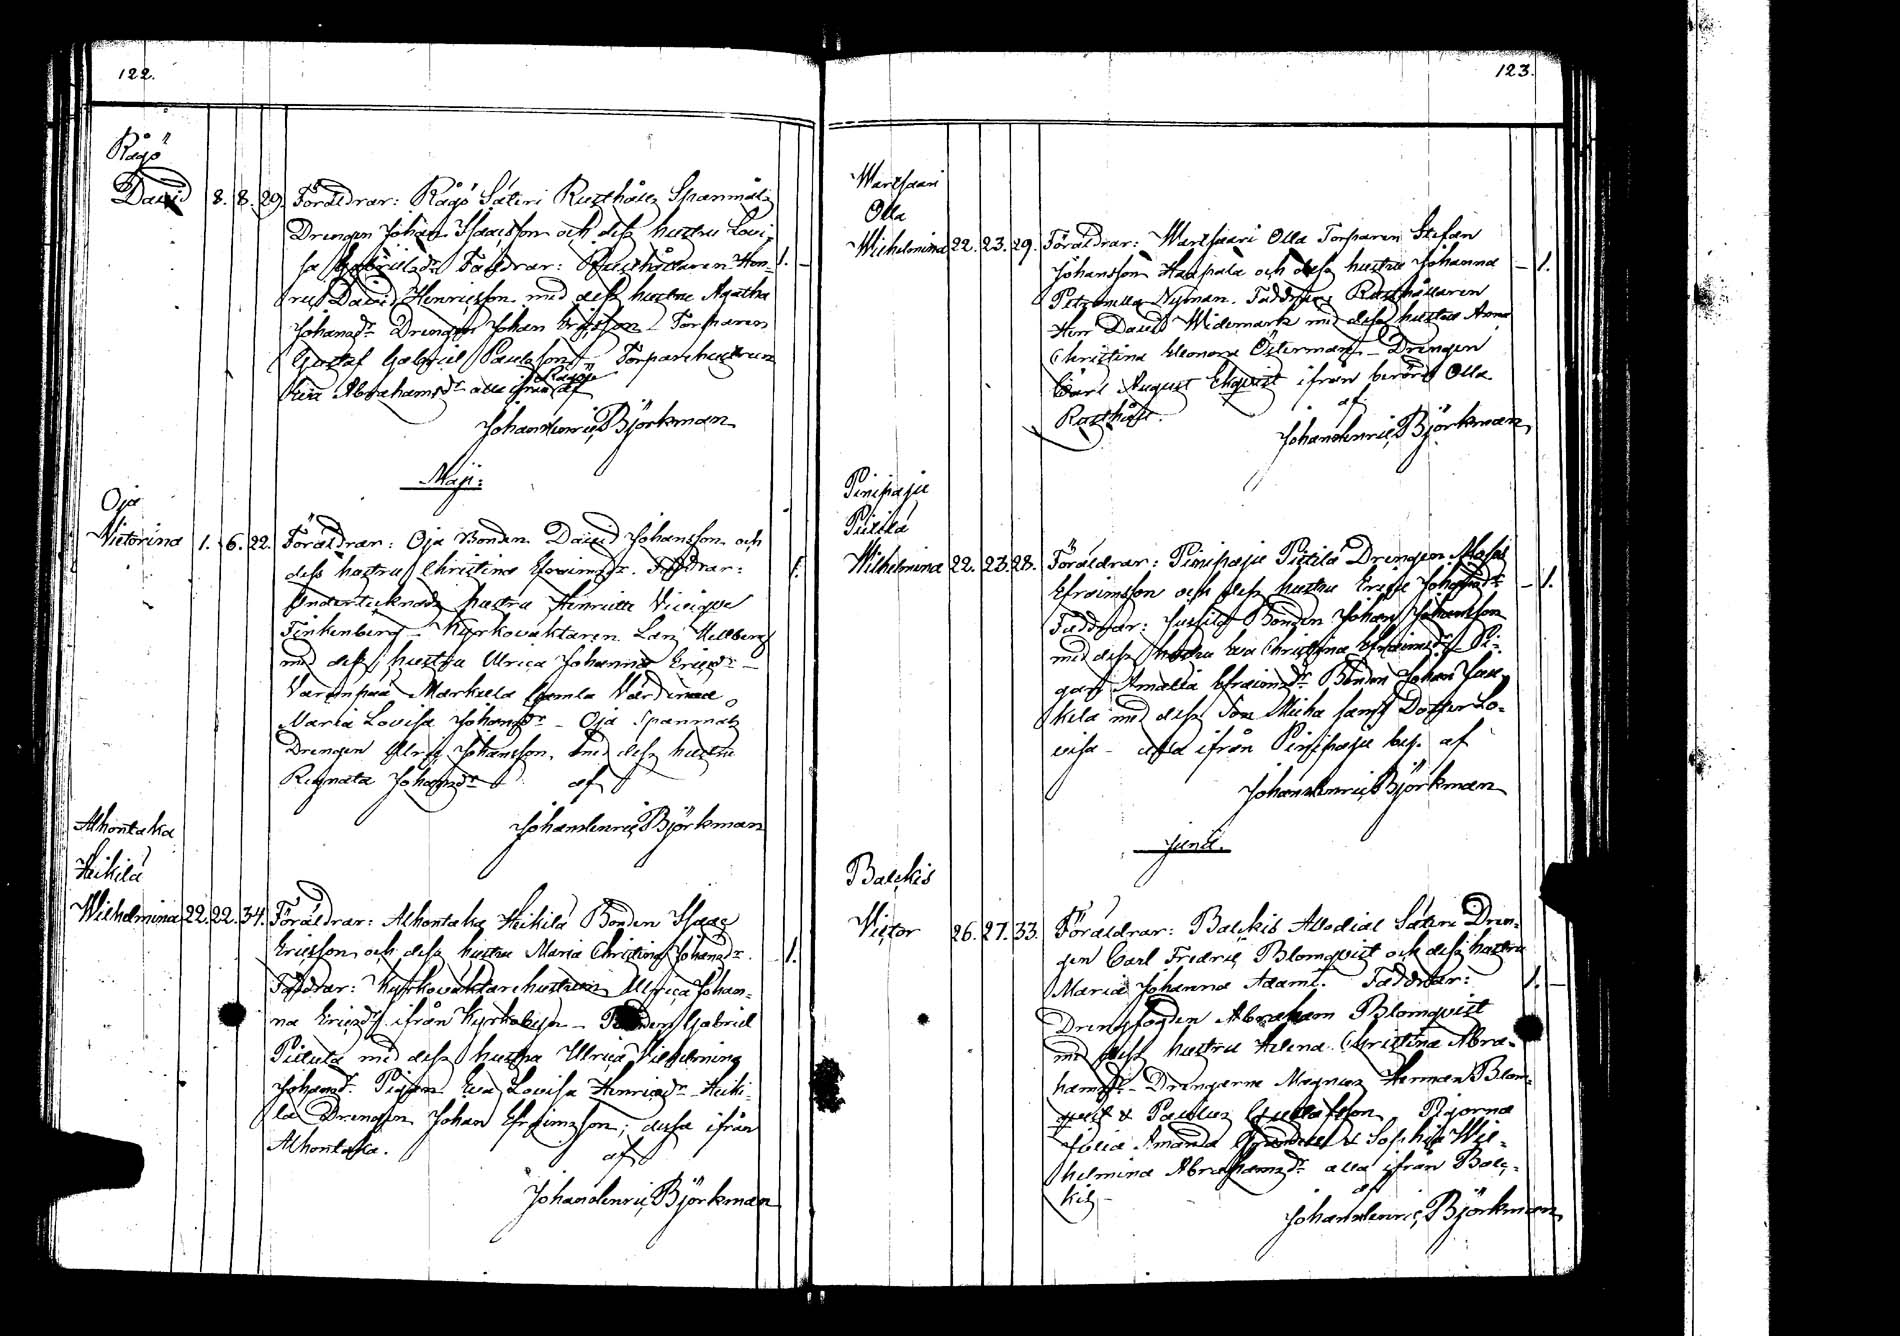 122.
Rågö
David 8. 8. 29. Föräldrar: Rågö Säteri Rusthålls Spanmåls
Drengen Johan Isacsson och dess hustru Lovi-
sa Gabrielsdr. Faddrar: Rusthållaren Hen-
ric David Henricsson med dess hustru Agatha
Johansdr Drengen Johan Ericsson - Torparen
Gustaf Gabriel Paulsson - Torparehustrun
Eva Abrahamsdr alla ifrån Rågö
af
Johan Henric Björkman
1. -
Maji:
Oja
Victorina 1. 6. 22. Föräldrar: Oja Bonden David Johansson och
dess hustru Christina Efraimsdr. Faddrar:
Undertecknads hustru Henriette Vivique
Finkenberg - Kyrkovaktaren Lars Hellberg
med dess hustru Ulrica Johanna Ericsdr -
Varenpää Markula Gamla Värdinna
Maria Lovisa Johansdr - Oja Spanmåls
Drengen Ulric Johansson, med dess hustru
Regnata Johansdr af
Johan Henric Björkman
1.
Alhontaka
Heikilä
Wilhelmina 22. 22. 34. Föräldrar: Alhontaka Heikilä Bonden Isaac
Ericsson och dess hustru Maria Christina Johansdr.
Faddrar: Kyrkovaktarehustrun Ulrica Johan-
na Ericsdr ifrån Kyrkobyn - Bonden Gabriel
Pietilä med dess hustru Ulrica Vilhelmina
Johansdr. Pigan Eva Lovisa Henricsdr - Heiki-
lä Drengen Johan Efraimsson; dessa ifrån
Alhontaka.
af
Johan Henric Björkman
1.
123.
Wartsaari
Olla
Wilhelmina 22. 23. 29. Föräldrar: Wartsaari Olla Torparen Stefan
Johansson Haapala och dess hustru Johanna
Petronella Nyman. Faddrar: Rusthållaren
Herr David Widemark med dess hustru Anna
Christina Eleonora Österman - Drengen
Carl August Ekqvist ifrån berörde Olla
Rusthåll.
af
Johan Henric Björkman
- 1.
Pinipaju
Pietilä
Wilhelmina 22. 23. 28. Föräldrar: Pinipaju Pietilä Drengen
Efraimsson och dess hustru Johansdr
Faddrar: Jussila Bonden Johan Johansson
med dess hustru Eva Christina Efraimsdr Pi-
gan Amalia Efraimsdr Bonden Johan
kila med dess Son Micha samt Dotter Lo-
visa - alla ifrån Pinipaju by. af
Johan Henric Björkman
- 1.
Junii.
Balckis
Victor 26. 27. 33. Föräldrar: Balckis Allodial Säteri Dren-
gen Carl Fredric Blomqvist och dess hustru
Maria Johanna Adami. Faddrar:
Drengfogden Abraham Blomqvist
med dess hustru Helena Christina Abra-
hamsdr - Drengarne Magnus Herman Blom-
qvist & Paulus Gustafsson, Pigorna
Julia Amanda & Sophia Wil-
helmina Abrahamsdr alla ifrån Balc-
kis -
af
Johan Henric Björkman
1. -